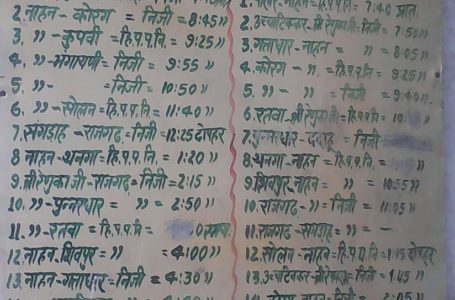 2. नाहन - कोरग = निजी = 8:45 ))
3. )) - कुपवी = हि.प.प.नि. = 9:25 ))
4. )) - मगापणी = निजी = 9:55 ))
5. )) - = निजी = 10:50 ))
6. )) - सोलन = हि.प.प.नि. = 11:40 ))
7. संगड़ाह - राजगढ़ = निजी = 12:25 दोपहर
8 नाहन - थनगा = हि.प.प.नि. = 1:20 ))
9. श्री रेणुका जी - राजगढ़ = निजी = 2:15 ))
10. )) - पुन्नरधार = )) = 2:50 ))
11. )) - रतवा = हि.प.प.नि =
12. नाहन - शिवपुर = )) = 4:00 ))
13. नाहन - गत्ताधार - निजी = 4:30 ))
7:40 प्रात
2. उच्चाटिक्कर - श्री रेणुका जी - निजी = 7:50 ))
3. गत्ताधार - नाहन = )) = 8:05 ))
4. कोरग - )) = हि.प.प.नि = 9:25 ))
5. )) - )) = निजी = 9:40 ))
6. रतवा - श्री रेणुका जी = हि.प.प.नि =
7. पुन्नरधार - ददाहू = निजी
8. थनगा - नाहन = हि.प.प.नि. =
9. शिवपुर - नाहन = )) = 10:55 ))
10. राजगढ़ - )) = निजी = 11:05 ))
11. राजगढ़ - संगड़ाह = )) = -
12. सोलन - नाहन = हि.प.प.नि = 1:15 दोपहर
13. उच्चाटिक्कर - श्री रेणुका - निजी = 1:45 ))